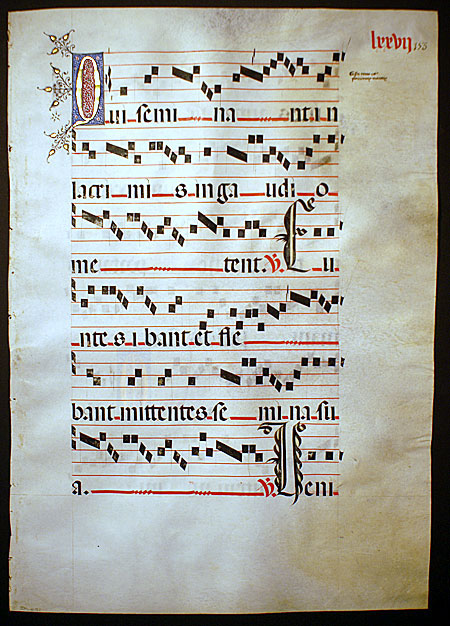 lxxvii 153
Qui semi na nt in
lacri mi s in ga udi o
me tent. ℣. Eu
nte s i bant et fle
bant mittentes se mi na su
a. ℣. Veni